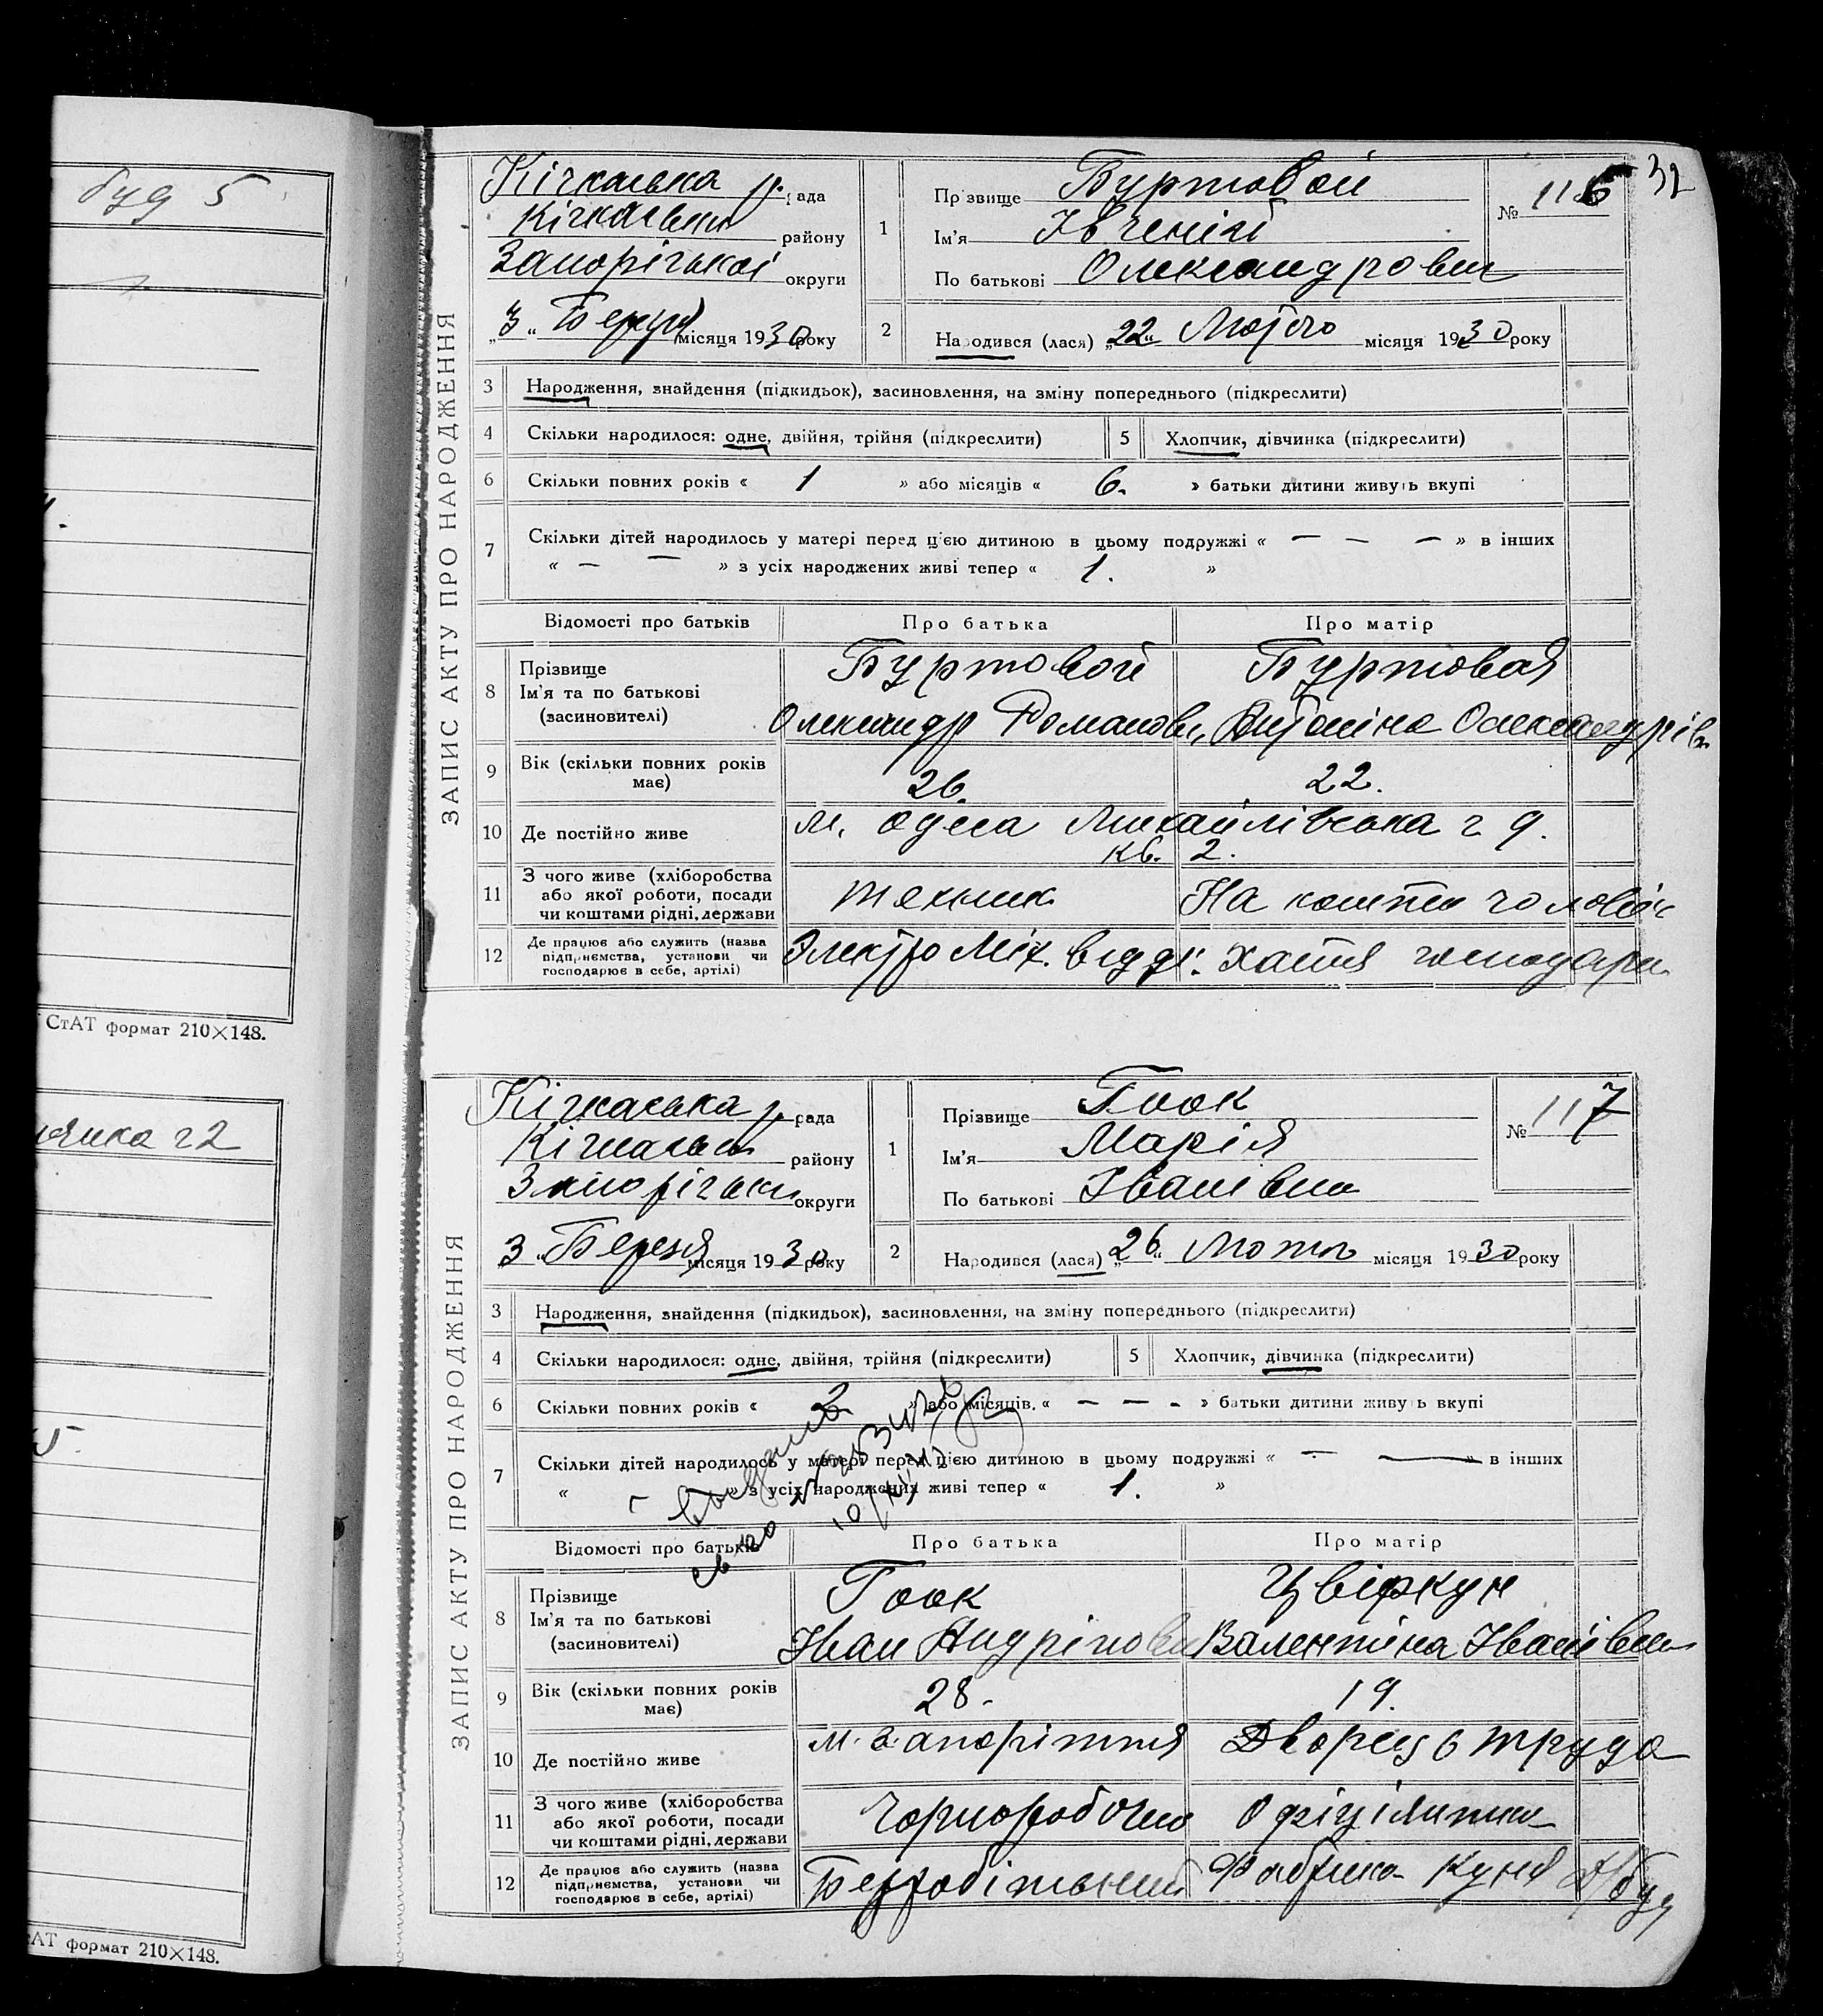 буд 5
СтАТ формат 210×148.
г 2
АТ формат 210×148.
32
ЗАПИС АКТУ ПРО НАРОДЖЕННЯ
Кічкаська р. рада
Кічкаськ району
Запорізької округи
„3“ Березн місяця 1930 року
1 Прізвище Буртовой
Ім'я Івгеній
По батькові Олександрович
№ 116
2 Народився (лася) „22“ Мойого місяця 1930 року
3 Народження, знайдення (підкидьок), засиновлення, на зміну попереднього (підкреслити)
4 Скільки народилося: одне, двійня, трійня (підкреслити) 5 Хлопчик, дівчинка (підкреслити)
6 Скільки повних років « 1 » або місяців « 6. » батьки дитини живуть вкупі
7 Скільки дітей народилось у матері перед цією дитиною в цьому подружжі « — — — » в інших
« — — » з усіх народжених живі тепер « 1. »
Відомості про батьків Про батька Про матір
8 Прізвище Буртовой Буртовая
Ім'я та по батькові
(засиновителі) Олександр Романови, Антоніна Олександрівн
9 Вік (скільки повних років
має) 26. 22.
10 Де постійно живе м. Одеса Михайлівська г 9.
кв. 2.
11 З чого живе (хліборобства
або якої роботи, посади
чи коштами рідні, держави техник На кошти чоловік
12 Де працює або служить (назва
підприємства, установи чи
господарює в себе, артілі) Электро Мех. відді. Хатня господарк
ЗАПИС АКТУ ПРО НАРОДЖЕННЯ
Кічкаська р. рада
Кічкаськ району
Запорізьк округи
3 „Березня місяця 1930 року
1 Прізвище Гоок
Ім'я Марія
По батькові Іванівна
№ 117
2 Народився (лася) „26“ місяця 1930 року
3 Народження, знайдення (підкидьох), засиновлення, на зміну попереднього (підкреслити)
4 Скільки народилося: одне, двійня, трійня (підкреслити) 5 Хлопчик, дівчинка (підкреслити)
6 Скільки повних років « 2 » або місяців. « — — — » батьки дитини живуть вкупі
7 Скільки дітей народилось у матері перед цією дитиною в цьому подружжі « — — » в інших
« » з усіх народжених живі тепер « 1. »
Відомості про батьків Про батька Про матір
8 Прізвище Гоок Цвіркун
Ім'я та по батькові
(засиновителі) Іван Андрінови Валентіна Іванівна
9 Вік (скільки повних років
має) 28. 19.
10 Де постійно живе м. Запоріжжя Дворец 6 труда
11 З чого живе (хліборобства
або якої роботи, посади
чи коштами рідні, держави Чорноробочи Офіціянтка
12 Де працює або служить (назва
підприємства, установи чи
господарює в себе, артілі) Безробітьний Фабрика Кухня Д/буд